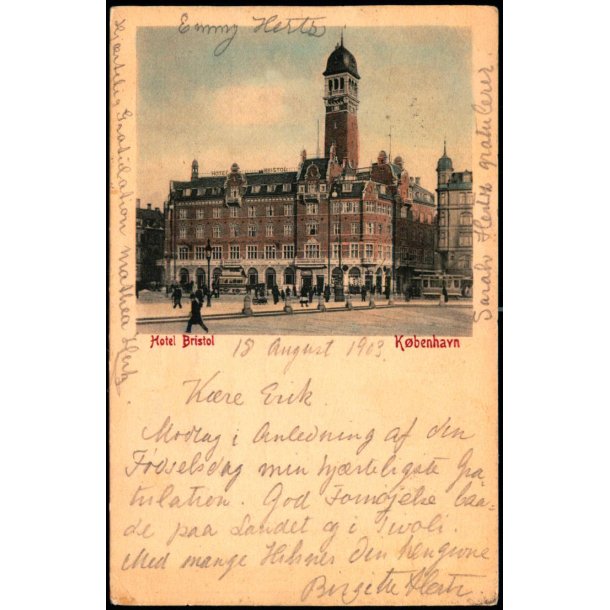 Emmy Hertz
Hjærtelig Gratulation Mathea Hertz
Sarah Hertz gratulerer
HOTEL BRISTOL
Hotel Bristol
København
18 August 1903.
Kære Erik.
Modtag i Anledning af den
Fødselsdag min hjærteligste Gra-
tulation. God Fornøjelse baa-
de paa Landet og i Tivoli.
Med mange Hilsner din hengivne
Birgitte Hertz.